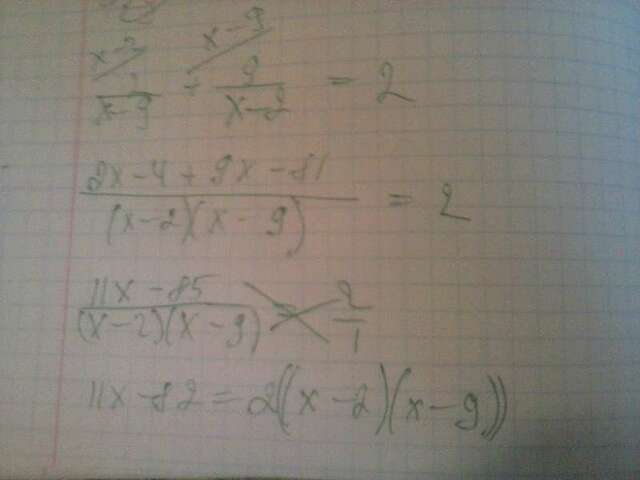 x-2 x-9
2/(x-9) + 9/(x-2) = 2
(2x-4+9x-81)/((x-2)(x-9)) = 2
(11x-85)/((x-2)(x-9)) = 2/1
11x-82=2((x-2)(x-9))